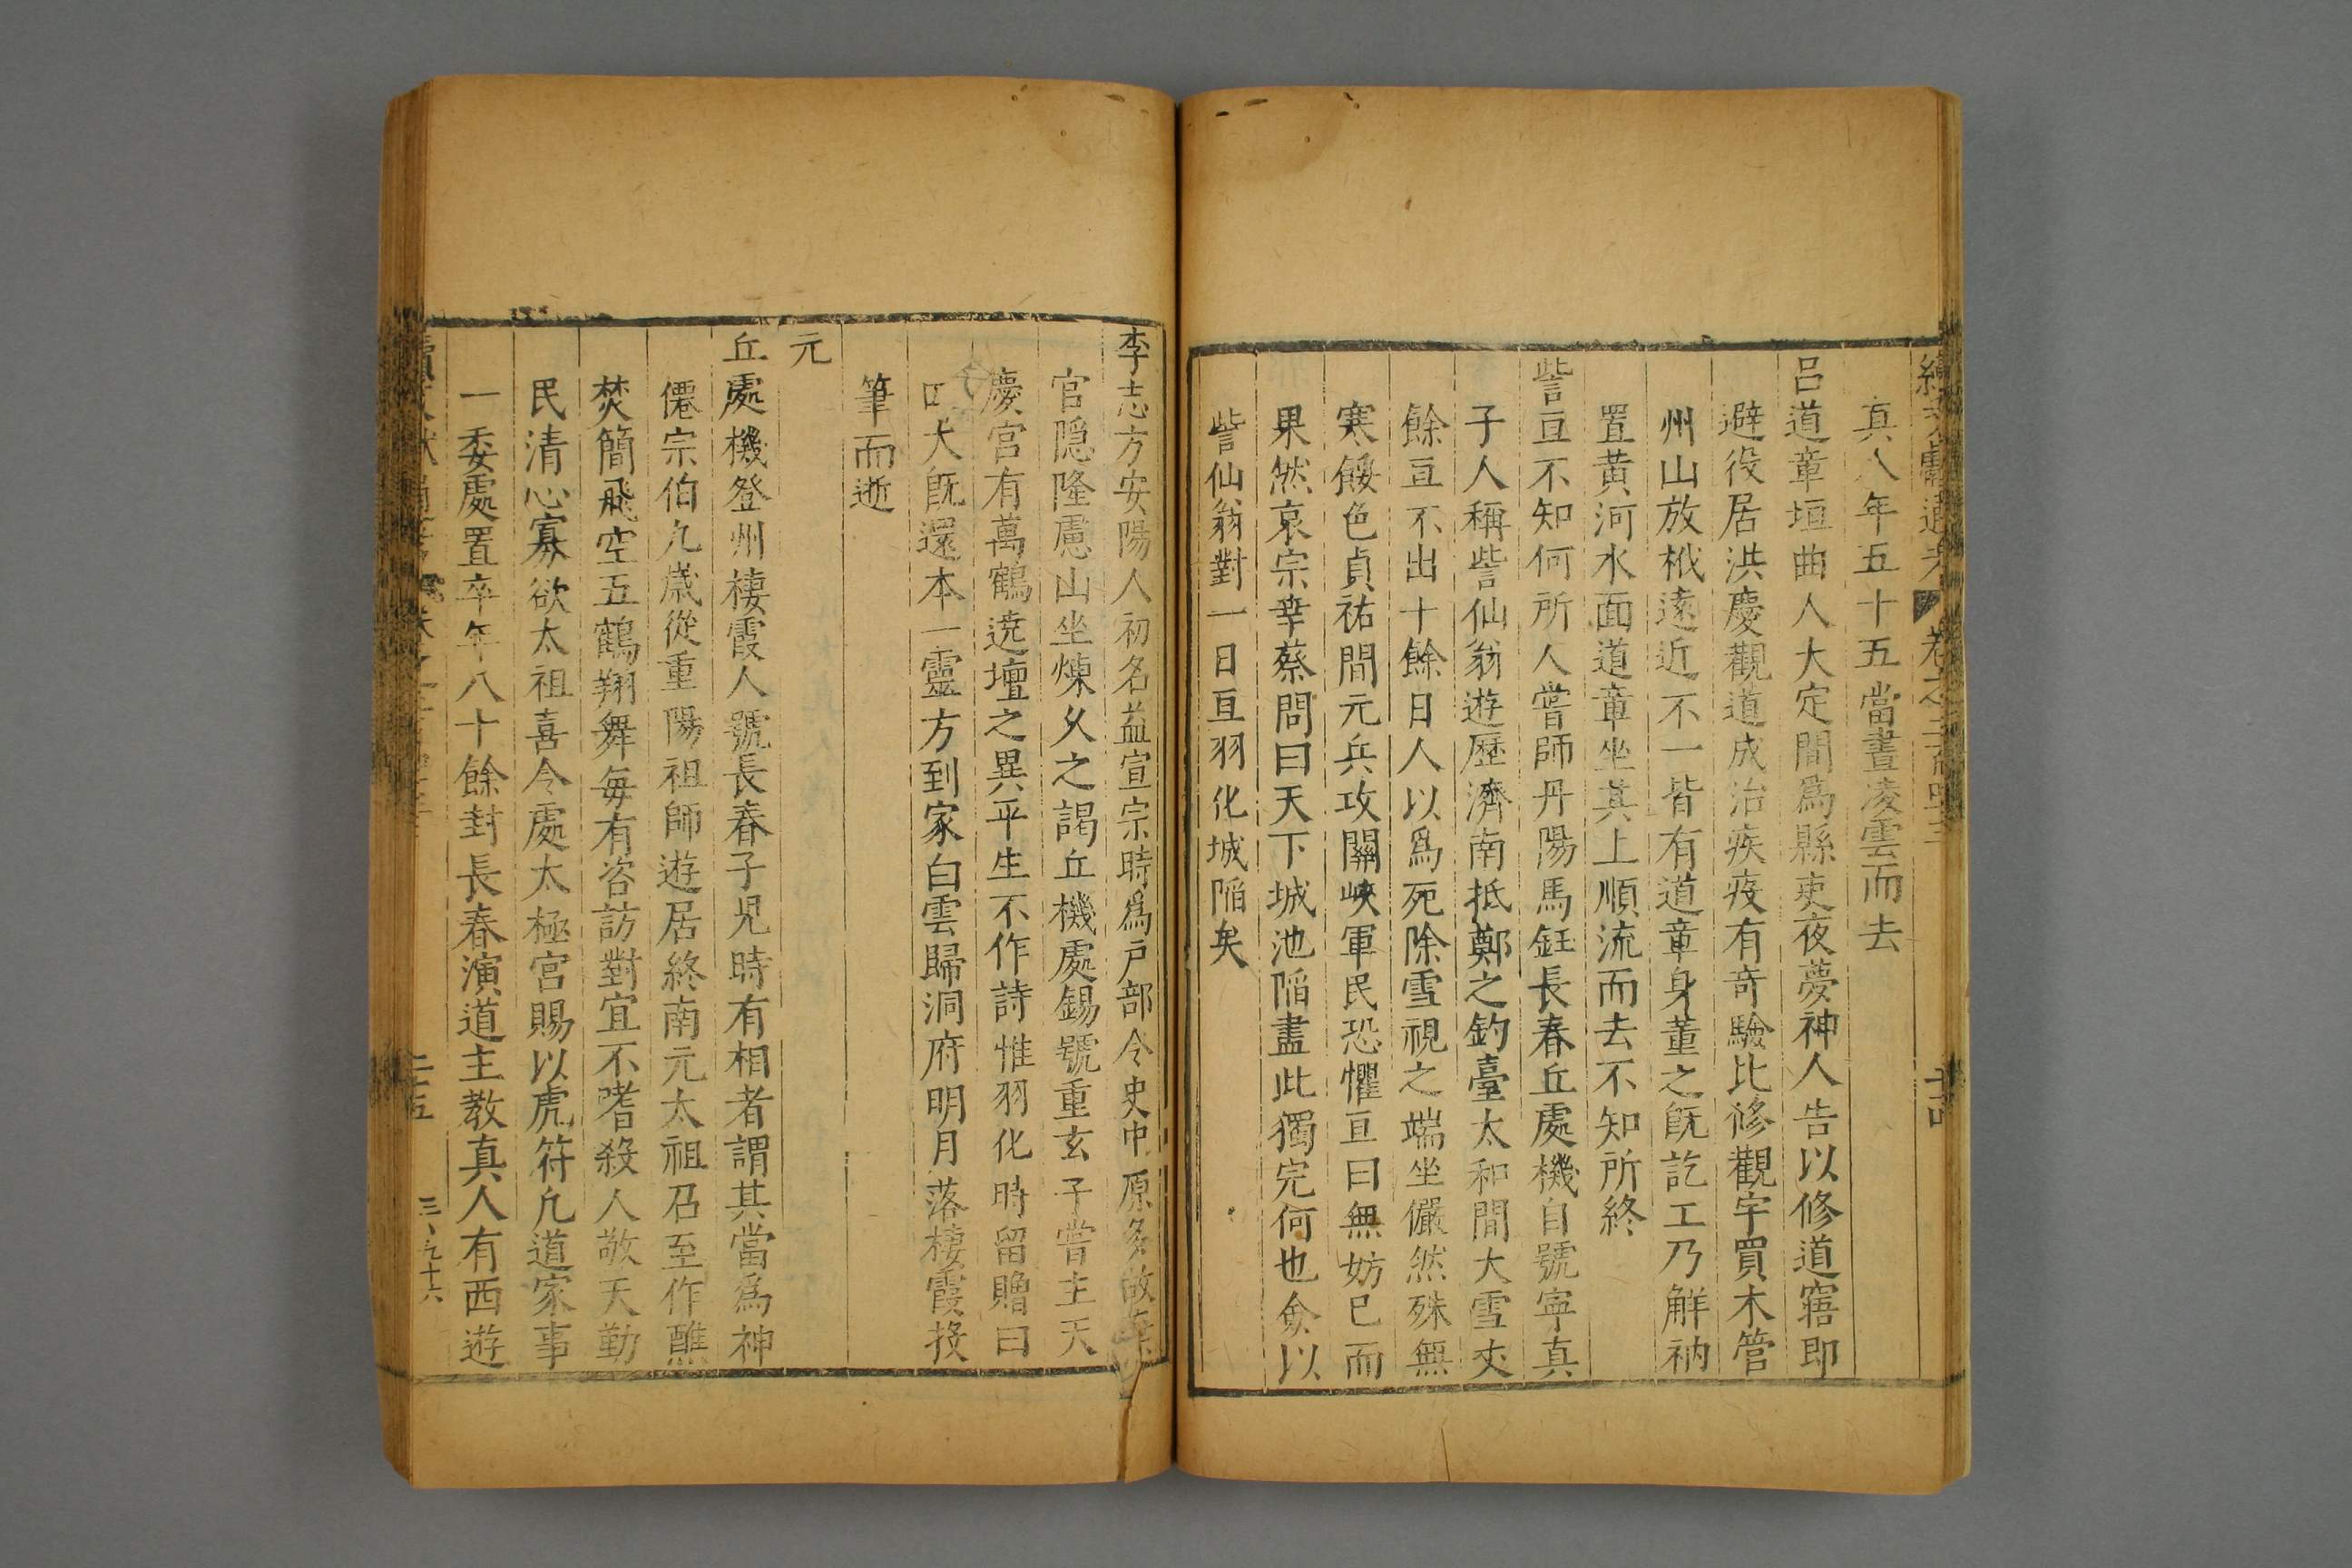 續文獻通考 卷之二百四十三 二十四
真人年五十五當晝凌雲而去
呂道章垣曲人大定間爲縣吏夜夢神人告以修道寤即
避役居洪慶觀道成治疾疫有竒驗比修觀宇買木管
州山放栰遠近不一皆有道章身董之旣訖工乃解衲
置黄河水面道章坐其上順流而去不知所終
訾亘不知何所人甞師丹陽馬鈺長春丘處機自號寧真
子人稱訾仙翁遊歷濟南抵鄭之釣臺太和間大雪丈
餘亘不出十餘日人以爲死除雪視之端坐儼然殊無
寒餒色貞祐間元兵攻關峽軍民恐懼亘曰無妨已而
果然哀宗幸蔡問曰天下城池陷盡此獨完何也僉以
訾仙翁對一日亘羽化城陷矣
李志方安陽人初名益宣宗時爲戸部令史中原多故棄
官隠隆慮山坐煉久之謁丘機處錫號重玄子嘗主天
慶宫有萬鶴遶壇之異平生不作詩惟羽化時留贈曰
四大旣還本一靈方到家白雲歸洞府明月落棲霞投
筆而逝
元
丘處機登州棲霞人號長春子児時有相者謂其當爲神
僊宗伯九歳從重陽祖師遊居終南元太祖召至作醮
焚簡飛空五鶴翔舞每有咨訪對宜不嗜殺人敬天勤
民清心寡欲太祖喜令處太極宫賜以虎符凡道家事
一委處置卒年八十餘封長春演道主教真人有西遊
續文獻通考 卷之二百四十三 二十五